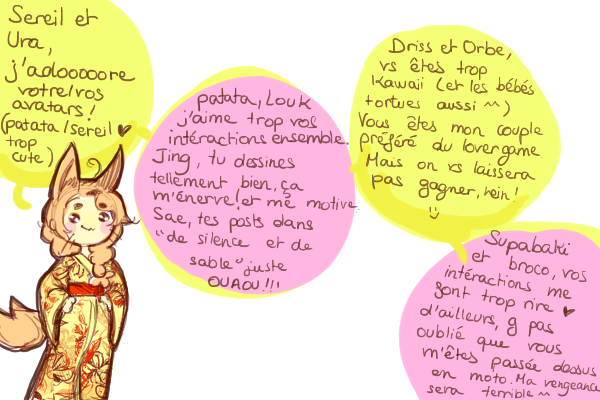 Sereil et
Ura,
j'adooooore
votre/vos
avatars!
(patata/sereil ♥
trop
cute)
patata, Louk
j'aime trop vos
intéractions ensemble.
Jing, tu dessines
tellement bien, ça
m'énerve! et me motive.
Sae, tes posts dans
"de silence et de
sable" juste
OUAOU!!!
Driss et Orbe,
vs êtes trop
Kawaii (et les bébés
tortues aussi ^^)
Vous êtes mon couple
préféré du lovergame
Mais on vs laissera
pas gagner, hein!
:)
Supabaki
et broco, vos
intéractions me
font trop rire ♥
d'ailleurs, g pas
oublié que vous
m'êtes passée dessus
en moto. Ma vengeance
sera terrible ^^